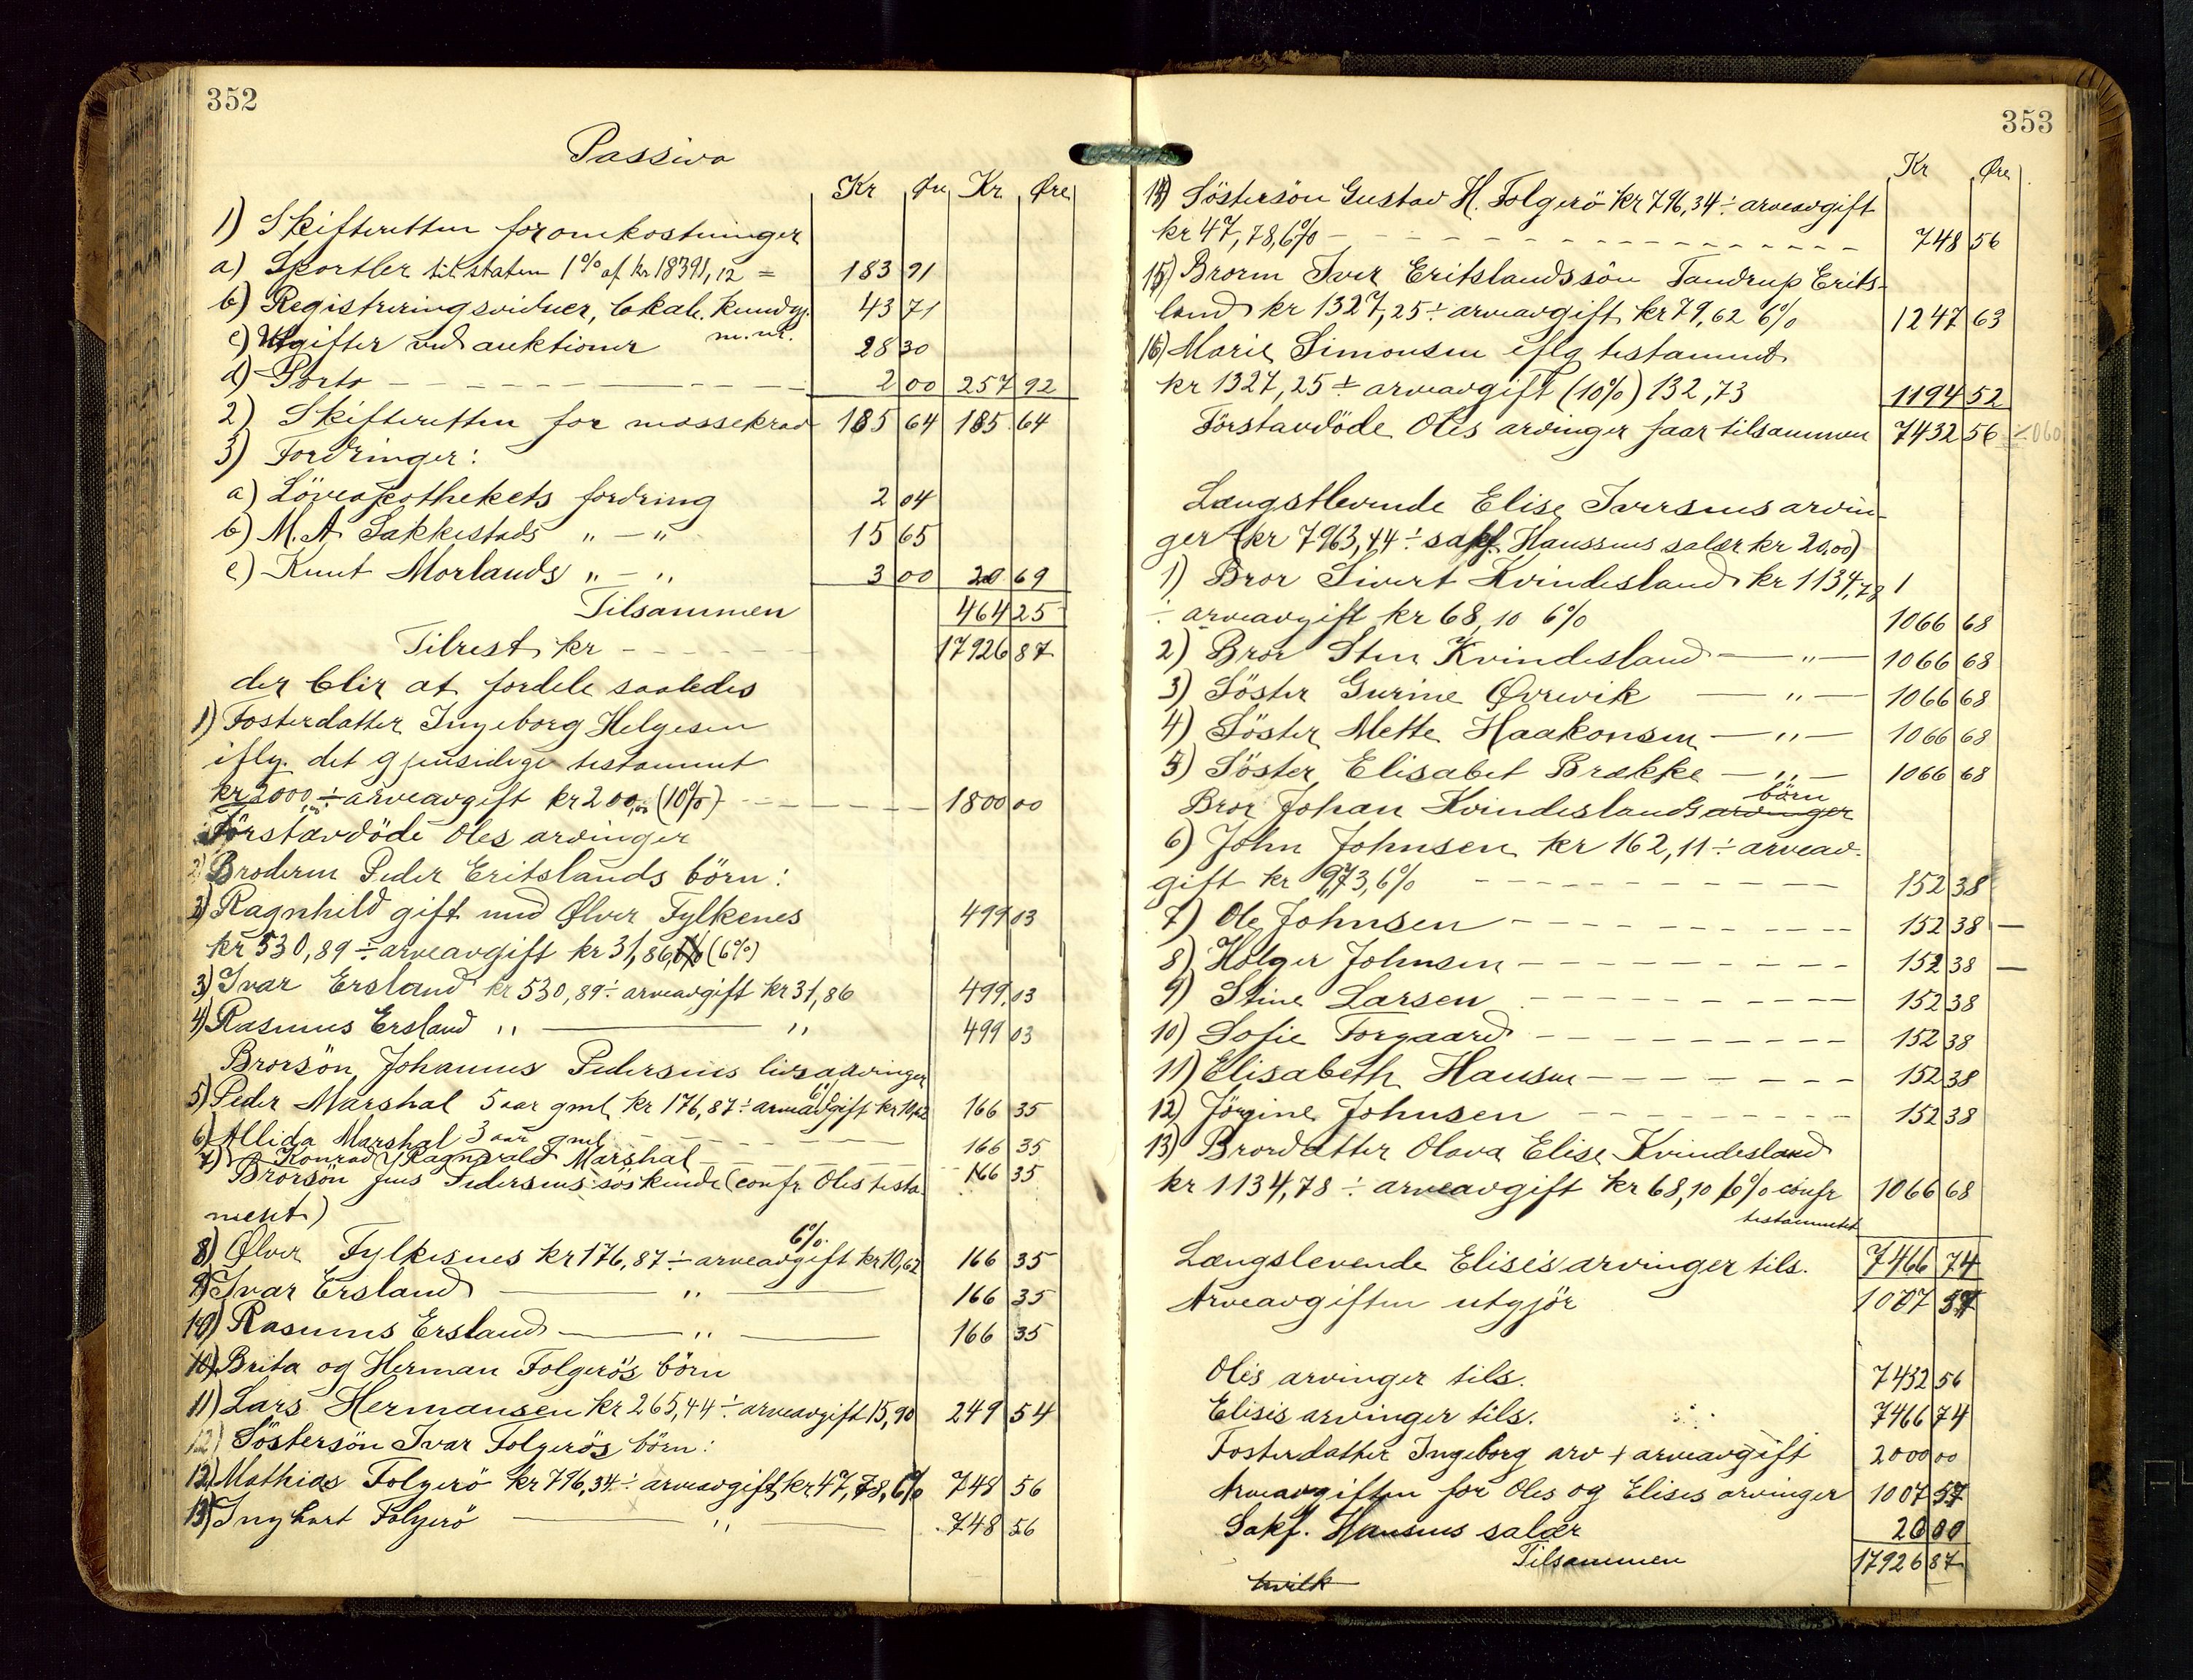 352
Passiva
Kr Øre Kr Øre
1) Skifteretten for omkostninger
a) Sportler til staten 1% af kr 18391,12 = 183 91
b) Registreringsvidner, lokale. kundgj. m.m. 43 71
c) Utgifter ved auktioner 28 30
d) Porto 2 00 257 92
2) Skifteretten for massekrav 185 64 185 64
3) Fordringer:
a) Löveapothekets fordring 2 04
b) M. A. Sakkestads " — " 15 65
c) Knut Morlands " — " 3 00 20 69
Tilsammen 464 25
Tilrest kr 17926 87
der blir at fordele saaledes
1) Fosterdatter Ingeborg Helgesen
iflg. det gjensidige testament
kr 2000,00 ÷ arveavgift kr 200,00 (10%) 1800 00
Förstavdöde Oles arvinger
Broderen Peder Eritslands börn:
2) Ragnhild gift med Ølver Fylkenes 499 03
kr 530,89 ÷ arveavgift kr 31,86 (6%)
3) Ivar Ersland kr 530,89 ÷ arveavgift kr 31,86 499 03
4) Rasmus Ersland " — " 499 03
Brorsön Johannes Pedersens livsarvinger
5) Peder Marshal 5 aar gml. kr 176,87 ÷ arveavgift kr 10,62 166 35
6) Allida Marshal 3 aar gml 166 35
7) Konrad Ragnvald Marshal 166 35
Brorsön Jens Pedersens söskende (confr. Oles testa-
ment)
8) Ølver Fylkesnes kr 176,87 ÷ arveavgift 6% kr 10,62 166 35
9) Ivar Ersland — " — 166 35
10) Rasmus Ersland — " — 166 35
Brita og Herman Folgerös börn
11) Lars Hermansen kr 265,44 ÷ arveavgift 15,90 249 54
Söstersön Ivar Folgerös börn:
12) Mathias Folgerö kr 796,34 ÷ arveavgift kr 47,78, 6% 748 56
13) Ingbart Folgerö — " — 748 56
353
Kr Øre
14) Söstersön Gustav H. Folgerö kr 796,34 ÷ arveavgift
kr 47,78, 6% 748 56
15) Broren Iver Eritslandssön Tandrup Erits-
land kr 1327,25 ÷ arveavgift kr 79,62 6% 1247 63
16) Marie Simonsen iflg testament
kr 1327,25 ÷ arveavgift (10%) 132,73 1194 52
Förstavdöde Oles arvinger faar tilsammen 7432 56
Længstlevende Elise Iversens arvin-
ger (kr 7963,44 ÷ sakf. Hanssens salær kr 20,00)
1) Bror Sivert Kvindesland kr 1134,78
÷ arveavgift kr 68,10 6% 1066 68
2) Bror Sten Kvindesland — " — 1066 68
3) Söster Gurine Øvrevik — " — 1066 68
4) Söster Mette Haakonsen — " — 1066 68
5) Söster Elisabet Brække — " — 1066 68
Bror Johan Kvindeslands arvinger börn
6) John Johnsen kr 162,11 ÷ arveav-
gift kr 9,73, 6% 152 38
7) Ole Johnsen 152 38 —
8) Holger Johnsen 152 38 —
9) Stine Larsen 152 38
10) Sofie Torgaard 152 38
11) Elisabeth Hansen 152 38
12) Jörgine Johnsen 152 38
13) Brordatter Olava Elise Kvindesland
kr 1134,78 ÷ arveavgift kr 68,10 6% confr 1066 68
testamentet
Længslevende Elises arvinger tils. 7466 74
Arveavgiften utgjör 1007 57
Oles arvinger tils. 7432 56
Elises arvinger tils. 7466 74
Fosterdatter Ingeborg arv + arveavgift 2000 00
Arveavgiften for Oles og Elises arvinger 1007 57
Sakf. Hansens salær 20 00
Tilsammen 17926 87
hvilk